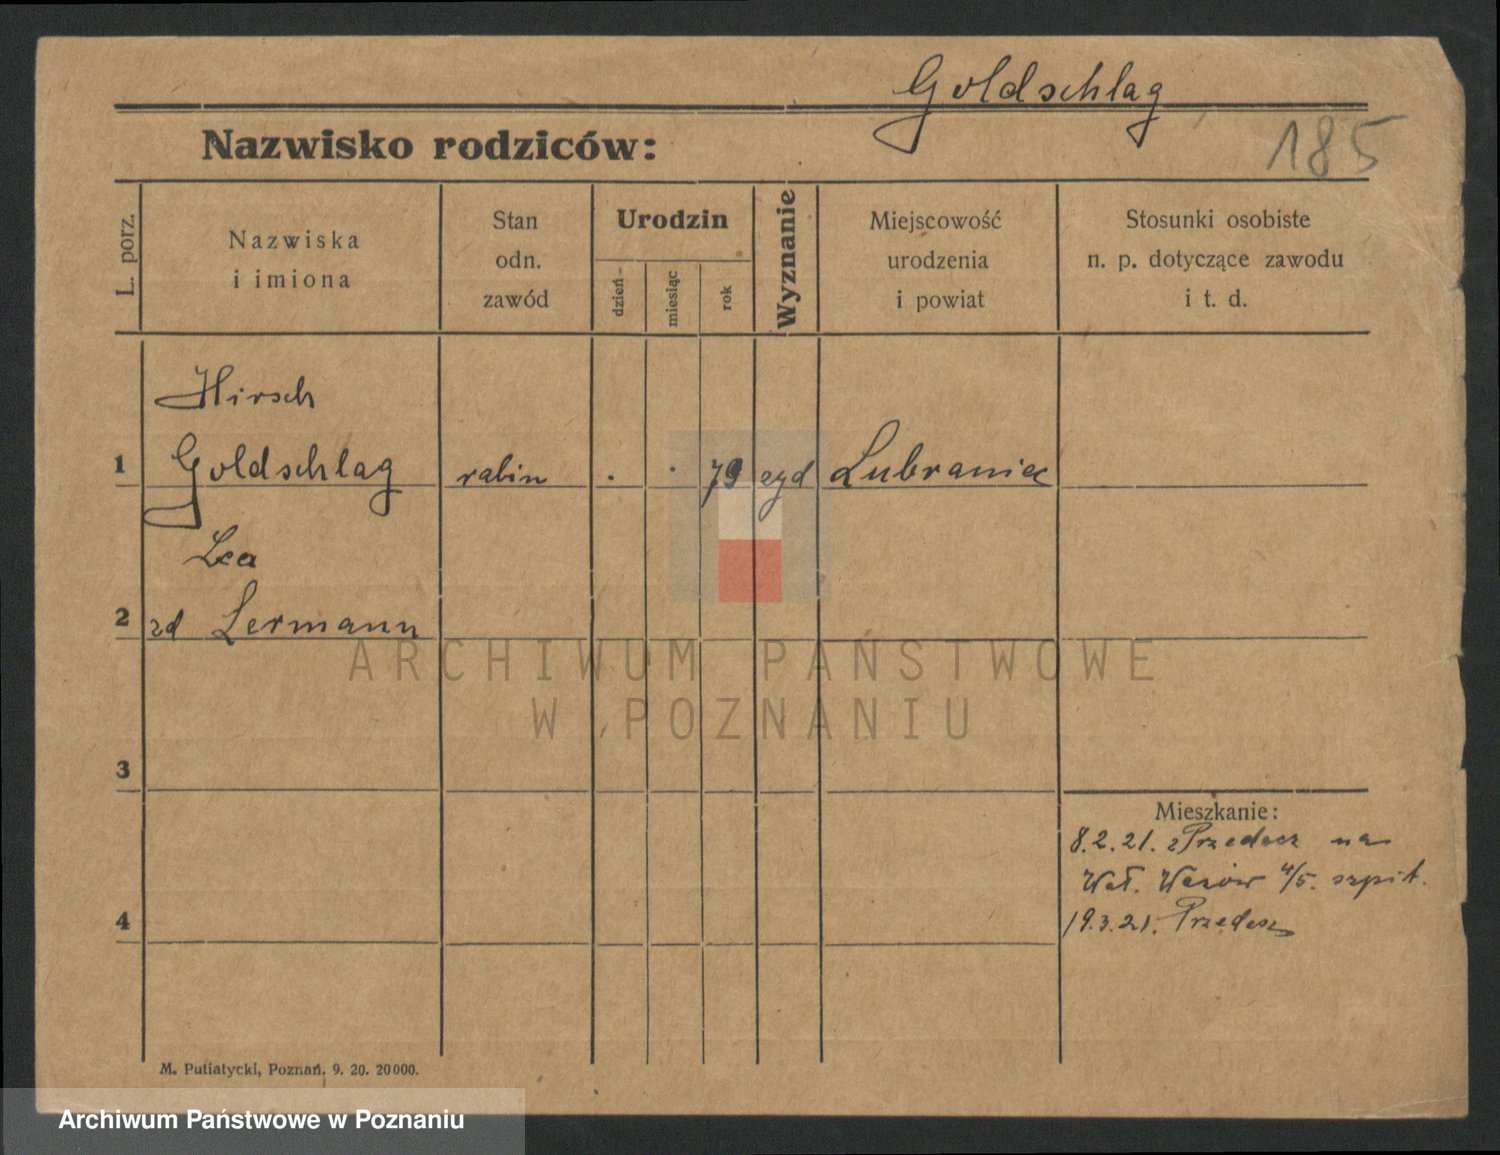 Goldschlag
Nazwisko rodziców:
185
L. porz.
Nazwiska
i imiona
Stan
odn.
zawód
Urodzin
dzień
miesiąc
rok
Wyznanie
Miejscowość
urodzenia
i powiat
Stosunki osobiste
n. p. dotyczące zawodu
i t. d.
Hirsch
1 Goldschlag rabin . . 79 żyd Lubraniec
Lea
2 zd Lermann
ARCHIWUM PAŃSTWOWE
W POZNANIU
3
Mieszkanie:
8.2.21. z Przedecz na
Wał. Wazów 4/5. szpit.
4
19.3.21. Przedecz
M. Putiatycki, Poznań. 9. 20. 20000.
Archiwum Państwowe w Poznaniu